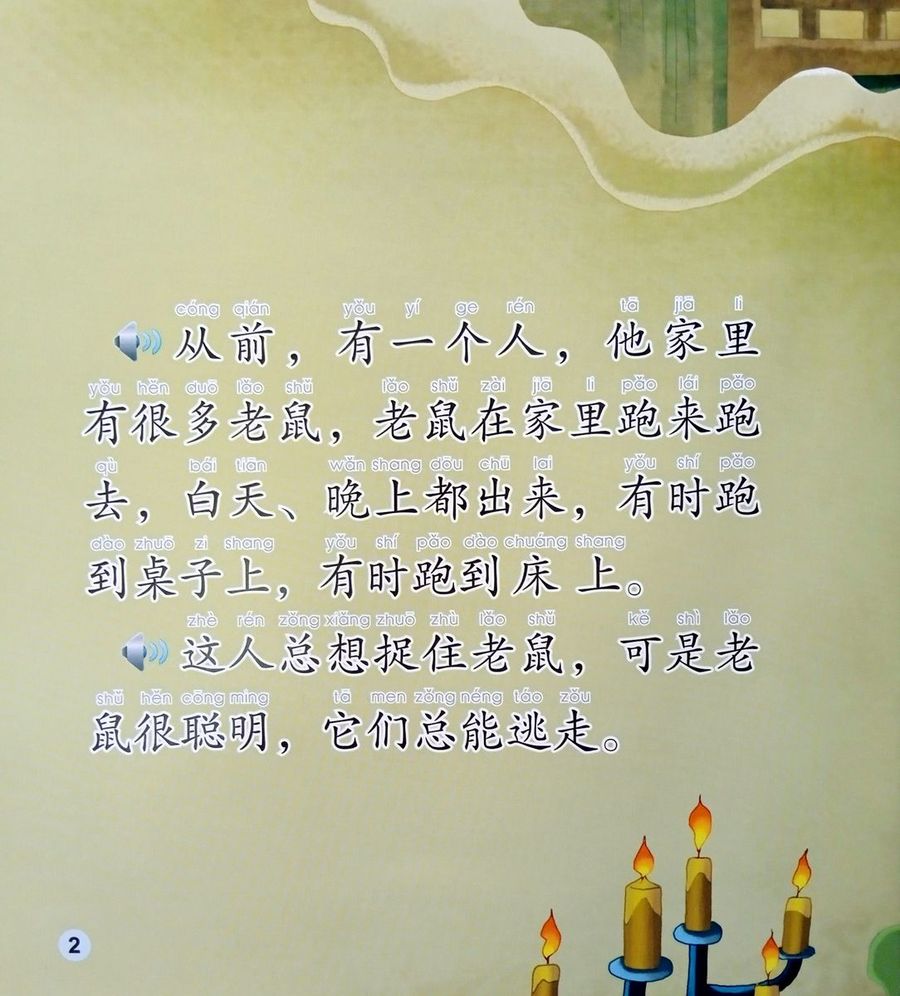 cóng qián yǒu yí ge rén tā jiā li
从前，有一个人，他家里
yǒu hěn duō lǎo shǔ lǎo shǔ zài jiā li pǎo lái pǎo
有很多老鼠，老鼠在家里跑来跑
qù bái tiān wǎn shang dōu chū lai yǒu shí pǎo
去，白天、晚上都出来，有时跑
dào zhuō zi shang yǒu shí pǎo dào chuáng shang
到桌子上，有时跑到床上。
zhè rén zǒng xiǎng zhuō zhù lǎo shǔ kě shì lǎo
这人总想捉住老鼠，可是老
shǔ hěn cōng míng tā men zǒng néng táo zǒu
鼠很聪明，它们总能逃走。
2